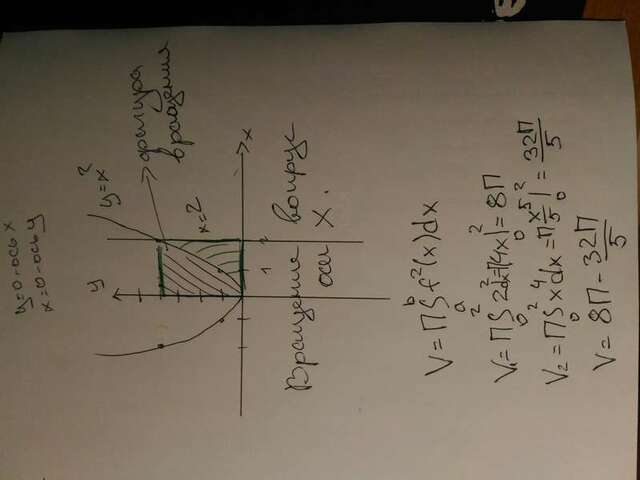 y=0-ось x
x=0-ось y
y
y=x²
фигура
вращения
x=2
x
1
2
Вращение вокруг
оси X.
V=П∫ₐᵇf²(x)dx
V₁=П∫₀²2²dx=П4x|₀²=8П
V₂=П∫₀²x⁴dx=П x⁵/5|₀²=32П/5
V=8П-32П/5